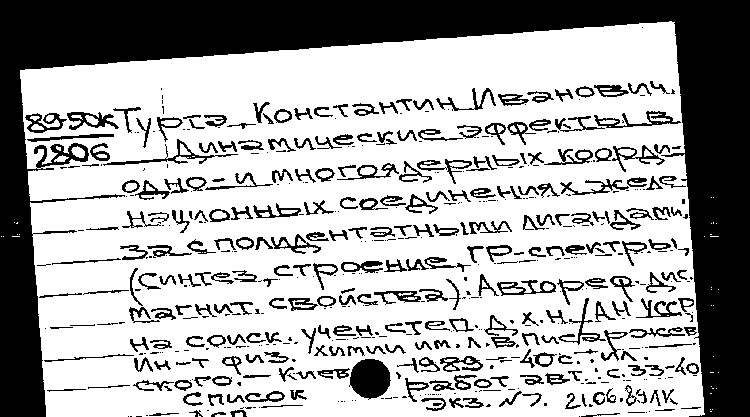 89-50К Турта, Константин Иванович.
2806 Динамические эффекты в
одно- и многоядерных коорди-
национных соединениях желе-
за с полидентатными лигандами:
(Синтез, строение, ГР-спектры,
магнит. свойства): Автореф. дис.
на соиск. учен. степ. д. х. н. / АН УССР,
Ин-т физ. химии им. Л. В. Писаржев-
ского. - Киев, 1989. - 40 с.: ил.
Список работ авт.: с. 33-40
Экз. N7. 21.06.89 ЛК